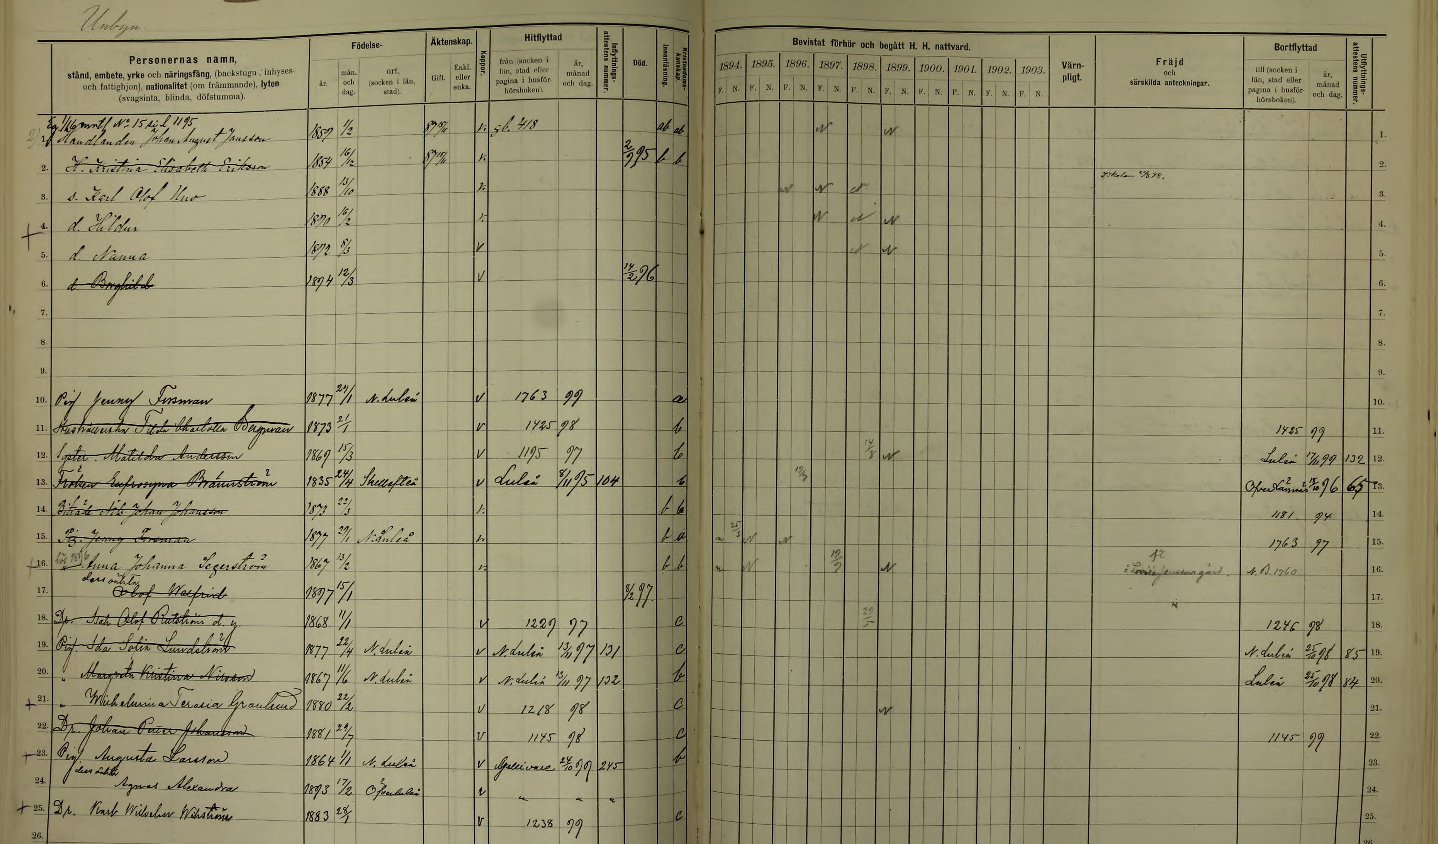 Unbyn.
Personernas namn,
stånd, embete, yrke och näringsfång, (backstugu-, inhyses-
och fattighjon), nationalitet (om främmande), lyten
(svagsinta, blinda, döfstumma).
Födelse-
år.
mån. och dag.
ort, (socken i län, stad).
Äktenskap.
Gift.
Enkl. eller enka.
Koppor.
Hitflyttad
från (socken i län, stad eller pagina i husförhörsboken).
år, månad och dag.
Inflyttnings-attestens nummer.
Död.
Innanläsning.
Kristendoms-kunskap.
Bevistat förhör och begått H. H. nattvard.
1894. 1895. 1896. 1897. 1898. 1899. 1900. 1901. 1902. 1903.
F. N. F. N. F. N. F. N. F. N. F. N. F. N. F. N. F. N. F. N.
Värn-pligt.
Fräjd
och
särskilda anteckningar.
Bortflyttad
till (socken i län, stad eller pagina i husförhörsboken).
år, månad och dag.
Utflyttnings-attestens nummer.
No 15 1195
1. Handlanden Johan August Jansson 1857 1/2 v. 418 ab ab N N 1.
2. H. Kristina Elisabeth Eriksson 1854 16/12 v. 2/9 95 b b 2.
3. s. Karl Olof Uno 1888 13/10 v. N N N 3.
4. d. Hildur 1890 16/2 v. N N N 4.
5. d. Nanna 1892 8/3 v N N 5.
6. d. Borghild 1894 12/3 v 14/2 96 6.
7. 7.
8. 8.
9. 9.
10. Pig. Jenny Forsman 1877 29/1 N. Luleå v 1763 99 a 10.
11. Hushållerska Tilda Charlotta Bergman 1873 21/1 v 1425 98 b 1425 99 11.
12. Matilda Andersson 1869 15/3 v 1195 97 b 14/8 N Luleå 99 132 12.
13. Fröken Eufrosyna Brännström 1835 24/4 Skellefteå v Luleå 8/11 95 104 b 96 65 13.
14. Nils Johan Johansson 1873 22/3 v. b b 1181 94 14.
15. Pig. Jenny Forsman 1877 29/1 N. Luleå v. b a N N 1763 97 15.
16. Anna Johanna Segerström 1867 13/2 v. b b N N N. B. 1760 16.
dess oäkta
17. Olof Walfrid 1897 15/1 8/2 97. 17.
18. Dr. Olof d. y. 1868 11/1 v 1229 97 c 29/5 1246 98 18.
19. Pig. Ida Sofia Lundström 1877 22/4 N. Luleå v N. Luleå 13/11 97 131 c N. Luleå 25/10 98 85 19.
20. " Margreta Kristina Nilsson 1867 11/6 N. Luleå v N. Luleå 13/11 97 132 b Luleå 25/10 98 84 20.
21. " Wilhelmina Teresia Granlund 1880 22/2 v 1218 98 c N 21.
22. Dr. Johan Petter Johansson 1881 29/7 v 1145 98 c 1145 99 22.
23. Pig. Augusta Larsson 1864 1/1 N. Luleå v Gellivare 24/10 99 245 b 23.
dess oäkta
24. Agnes Alexandra 1893 17/2 Öfverluleå v " " " 24.
25. Dr. Karl Wilhelm Wikström 1883 28/1 v 1238 99 c 25.
26. 26.